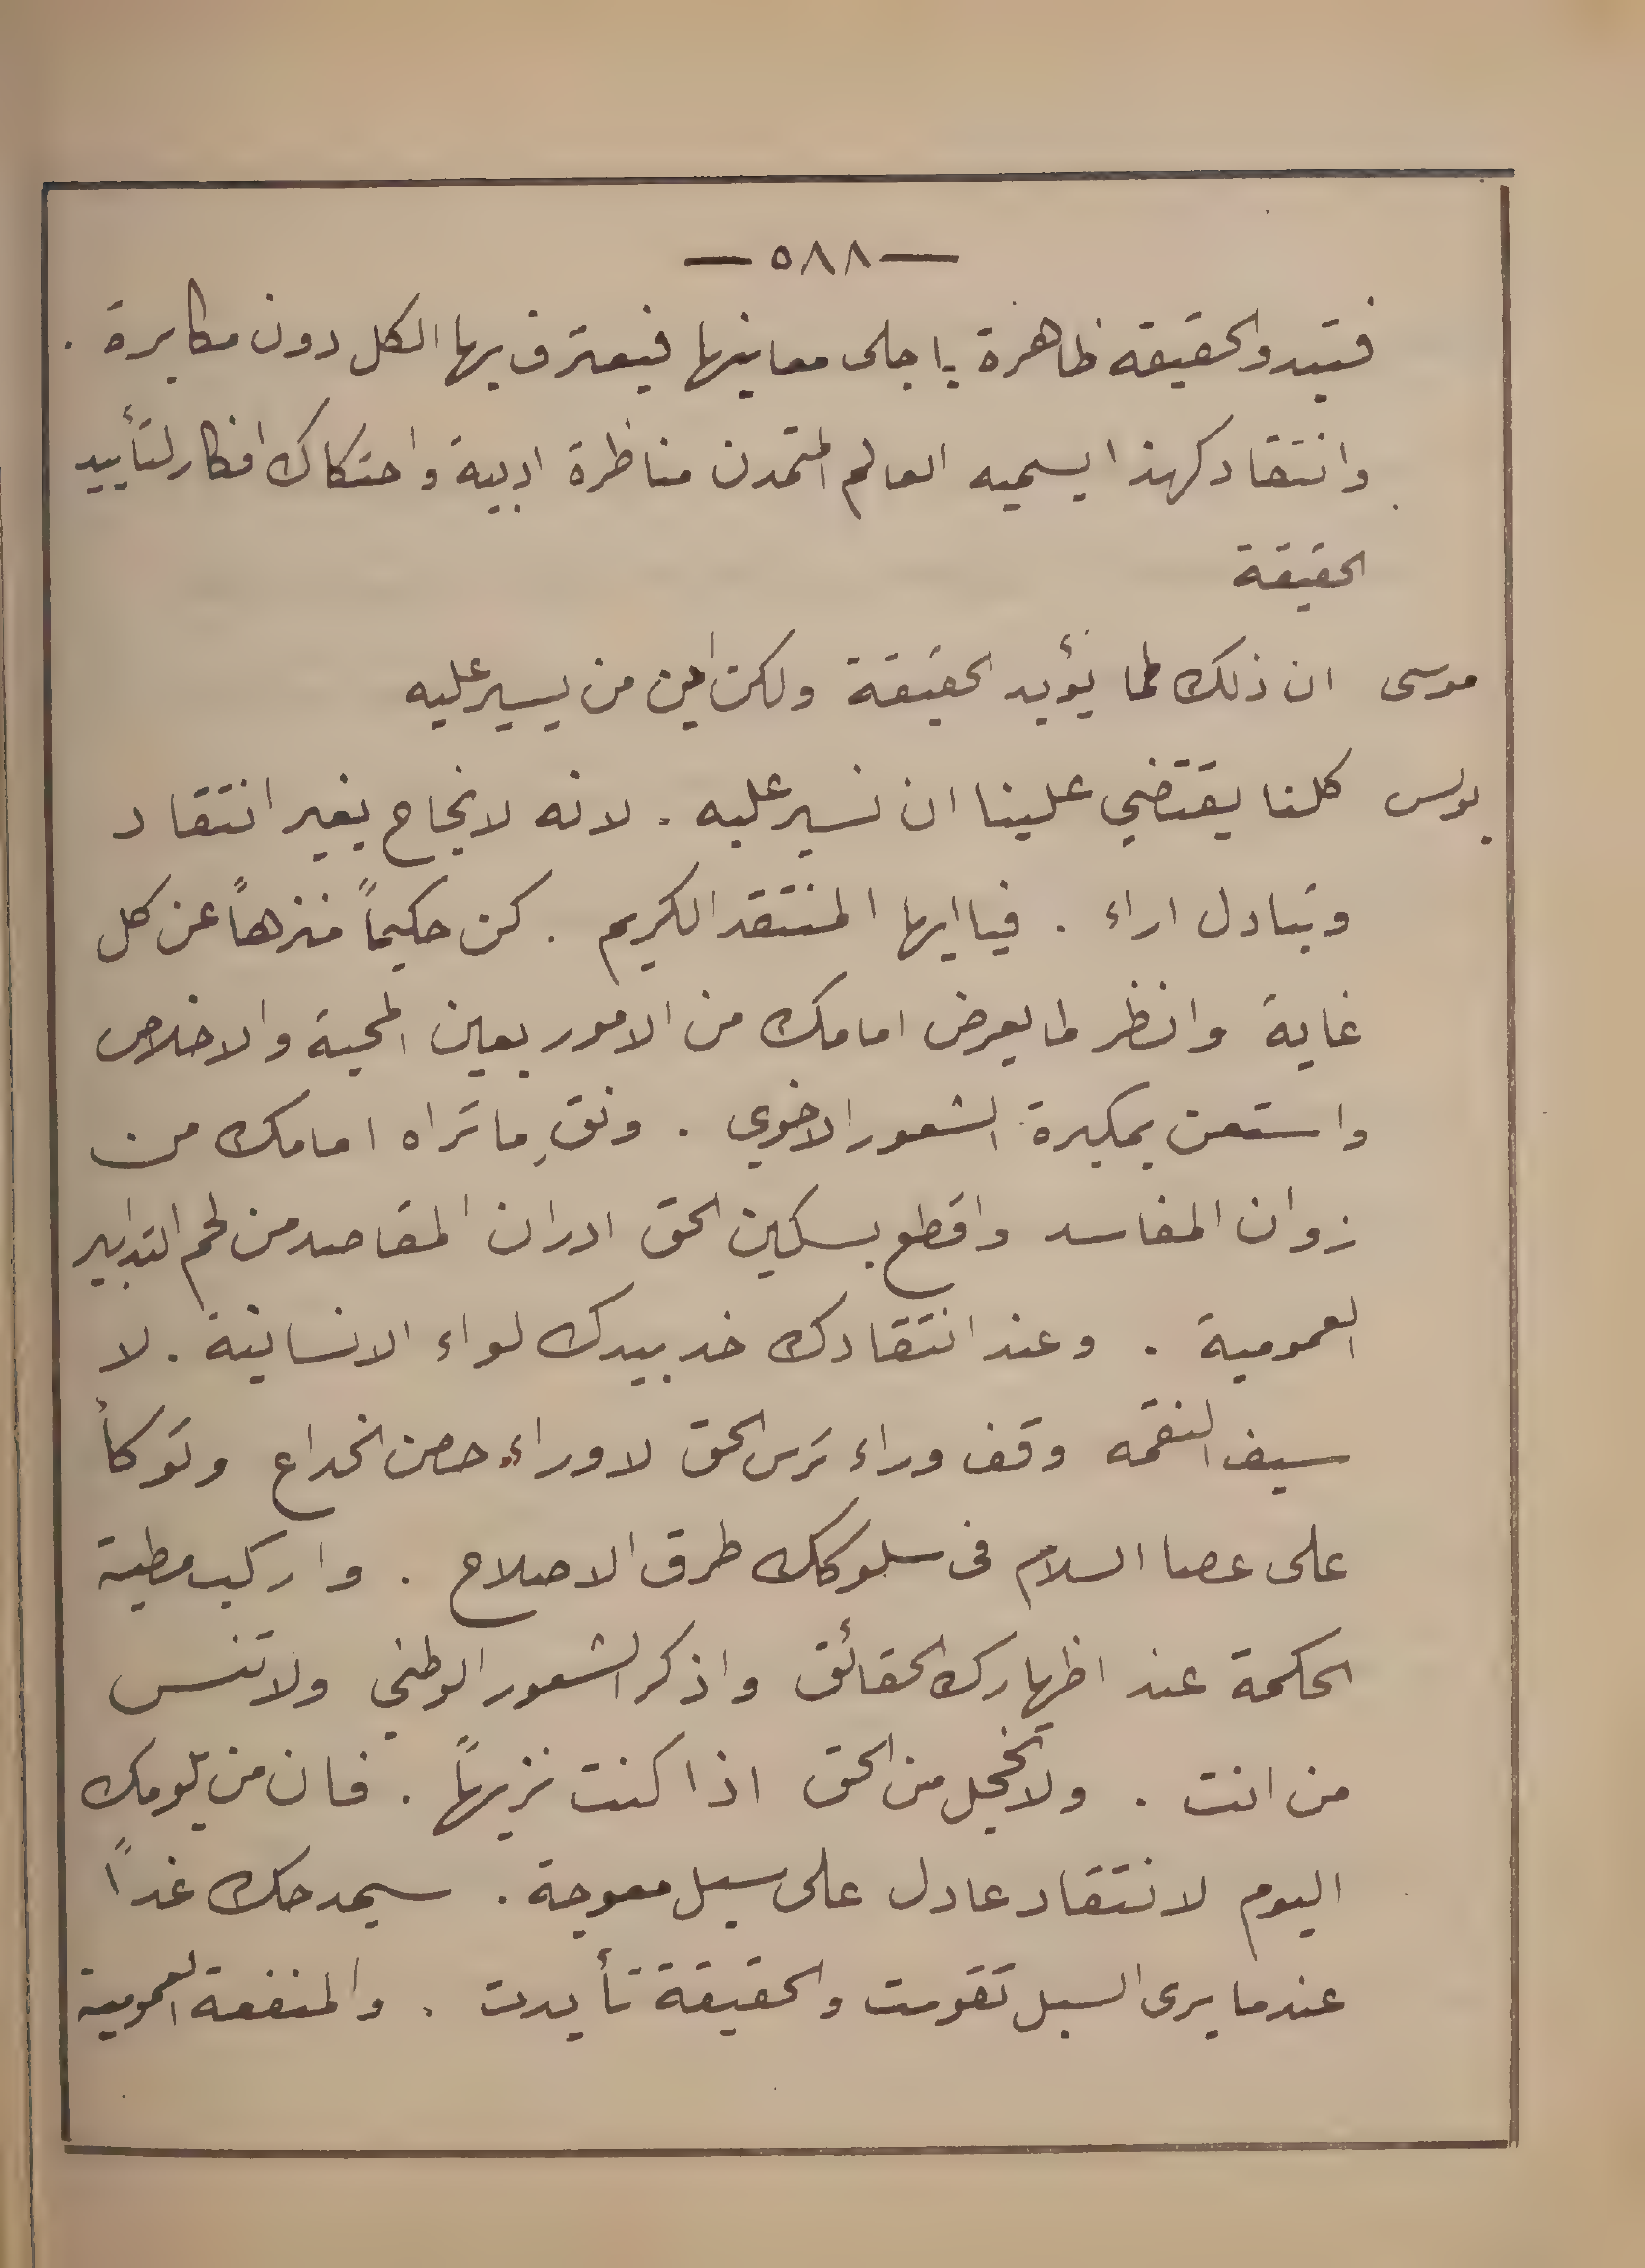 — ٥٨٨ —
فتبدو الحقيقه ظاهرة باجلى معانيها فيعترف بها الكل دون مكابرة .
وانتقاد كهذا يسميه العالم المتمدن مناظرة ادبية واحتكاك افكار لتأييد
الحقيقة
موسى ان ذلك لمما يؤيد الحقيقة ولكن اين من يسير عليه
بولس كلنا يقتضي علينا ان نسير عليه . لانه لا نجاح بغير انتقاد
وتبادل اراء . فيا ايها المنتقد الكريم . كن حكيماً منزهاً عن كل
غاية وانظر لما يعرض امامك من الامور بعين المحبة والاخلاص
واستعن بمكبرة الشعور الاخوي . ونقِ ما تراه امامك من
زوان المفاسد واقطع بسكين الحق ادران المقاصد من لحم التدابير
العمومية . وعند انتقادك خد بيدك لواء الانسانية . لا
سيف النقمه وقف وراء ترس الحق لا وراء حصن الخداع وتوكأ
على عصا السلام فى سلوكك طرق الاصلاح . واركب مطية
الحكمة عند اظهارك الحقائق واذكر الشعور الوطني ولا تنس
من انت . ولا تخجل من الحق اذا كنت نزيهاً . فان من يلومك
اليوم لانتقاد عادل على سبل معوجة . سيمدحك غداً
عندما يرى السبل تقومت والحقيقة تأيدت . والمنفعة العمومية